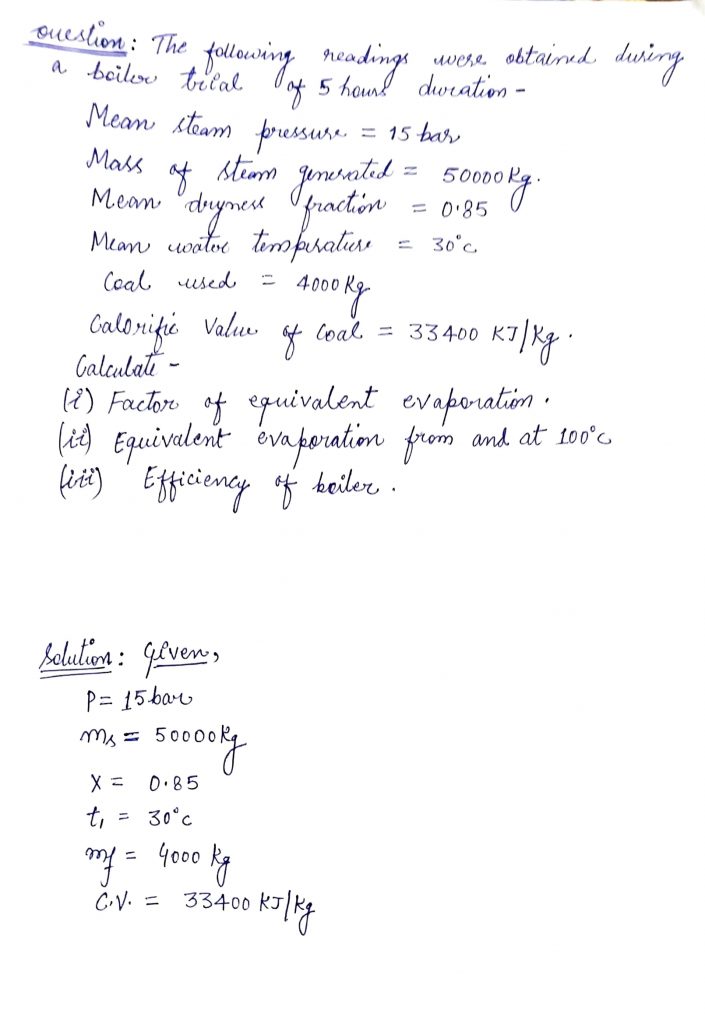 Question: The following readings were obtained during
a boiler trial of 5 hours duration -
Mean steam pressure = 15 bar
Mass of steam generated = 50000 Kg.
Mean dryness fraction = 0.85
Mean water temperature = 30°c
Coal used = 4000 Kg
Calorific Value of Coal = 33400 KJ/Kg.
Calculate -
(i) Factor of equivalent evaporation.
(ii) Equivalent evaporation from and at 100°c
(iii) Efficiency of boiler.
Solution: Given,
P = 15 bar
ms = 50000 Kg
X = 0.85
t1 = 30°c
mf = 4000 Kg
C.V. = 33400 KJ/Kg